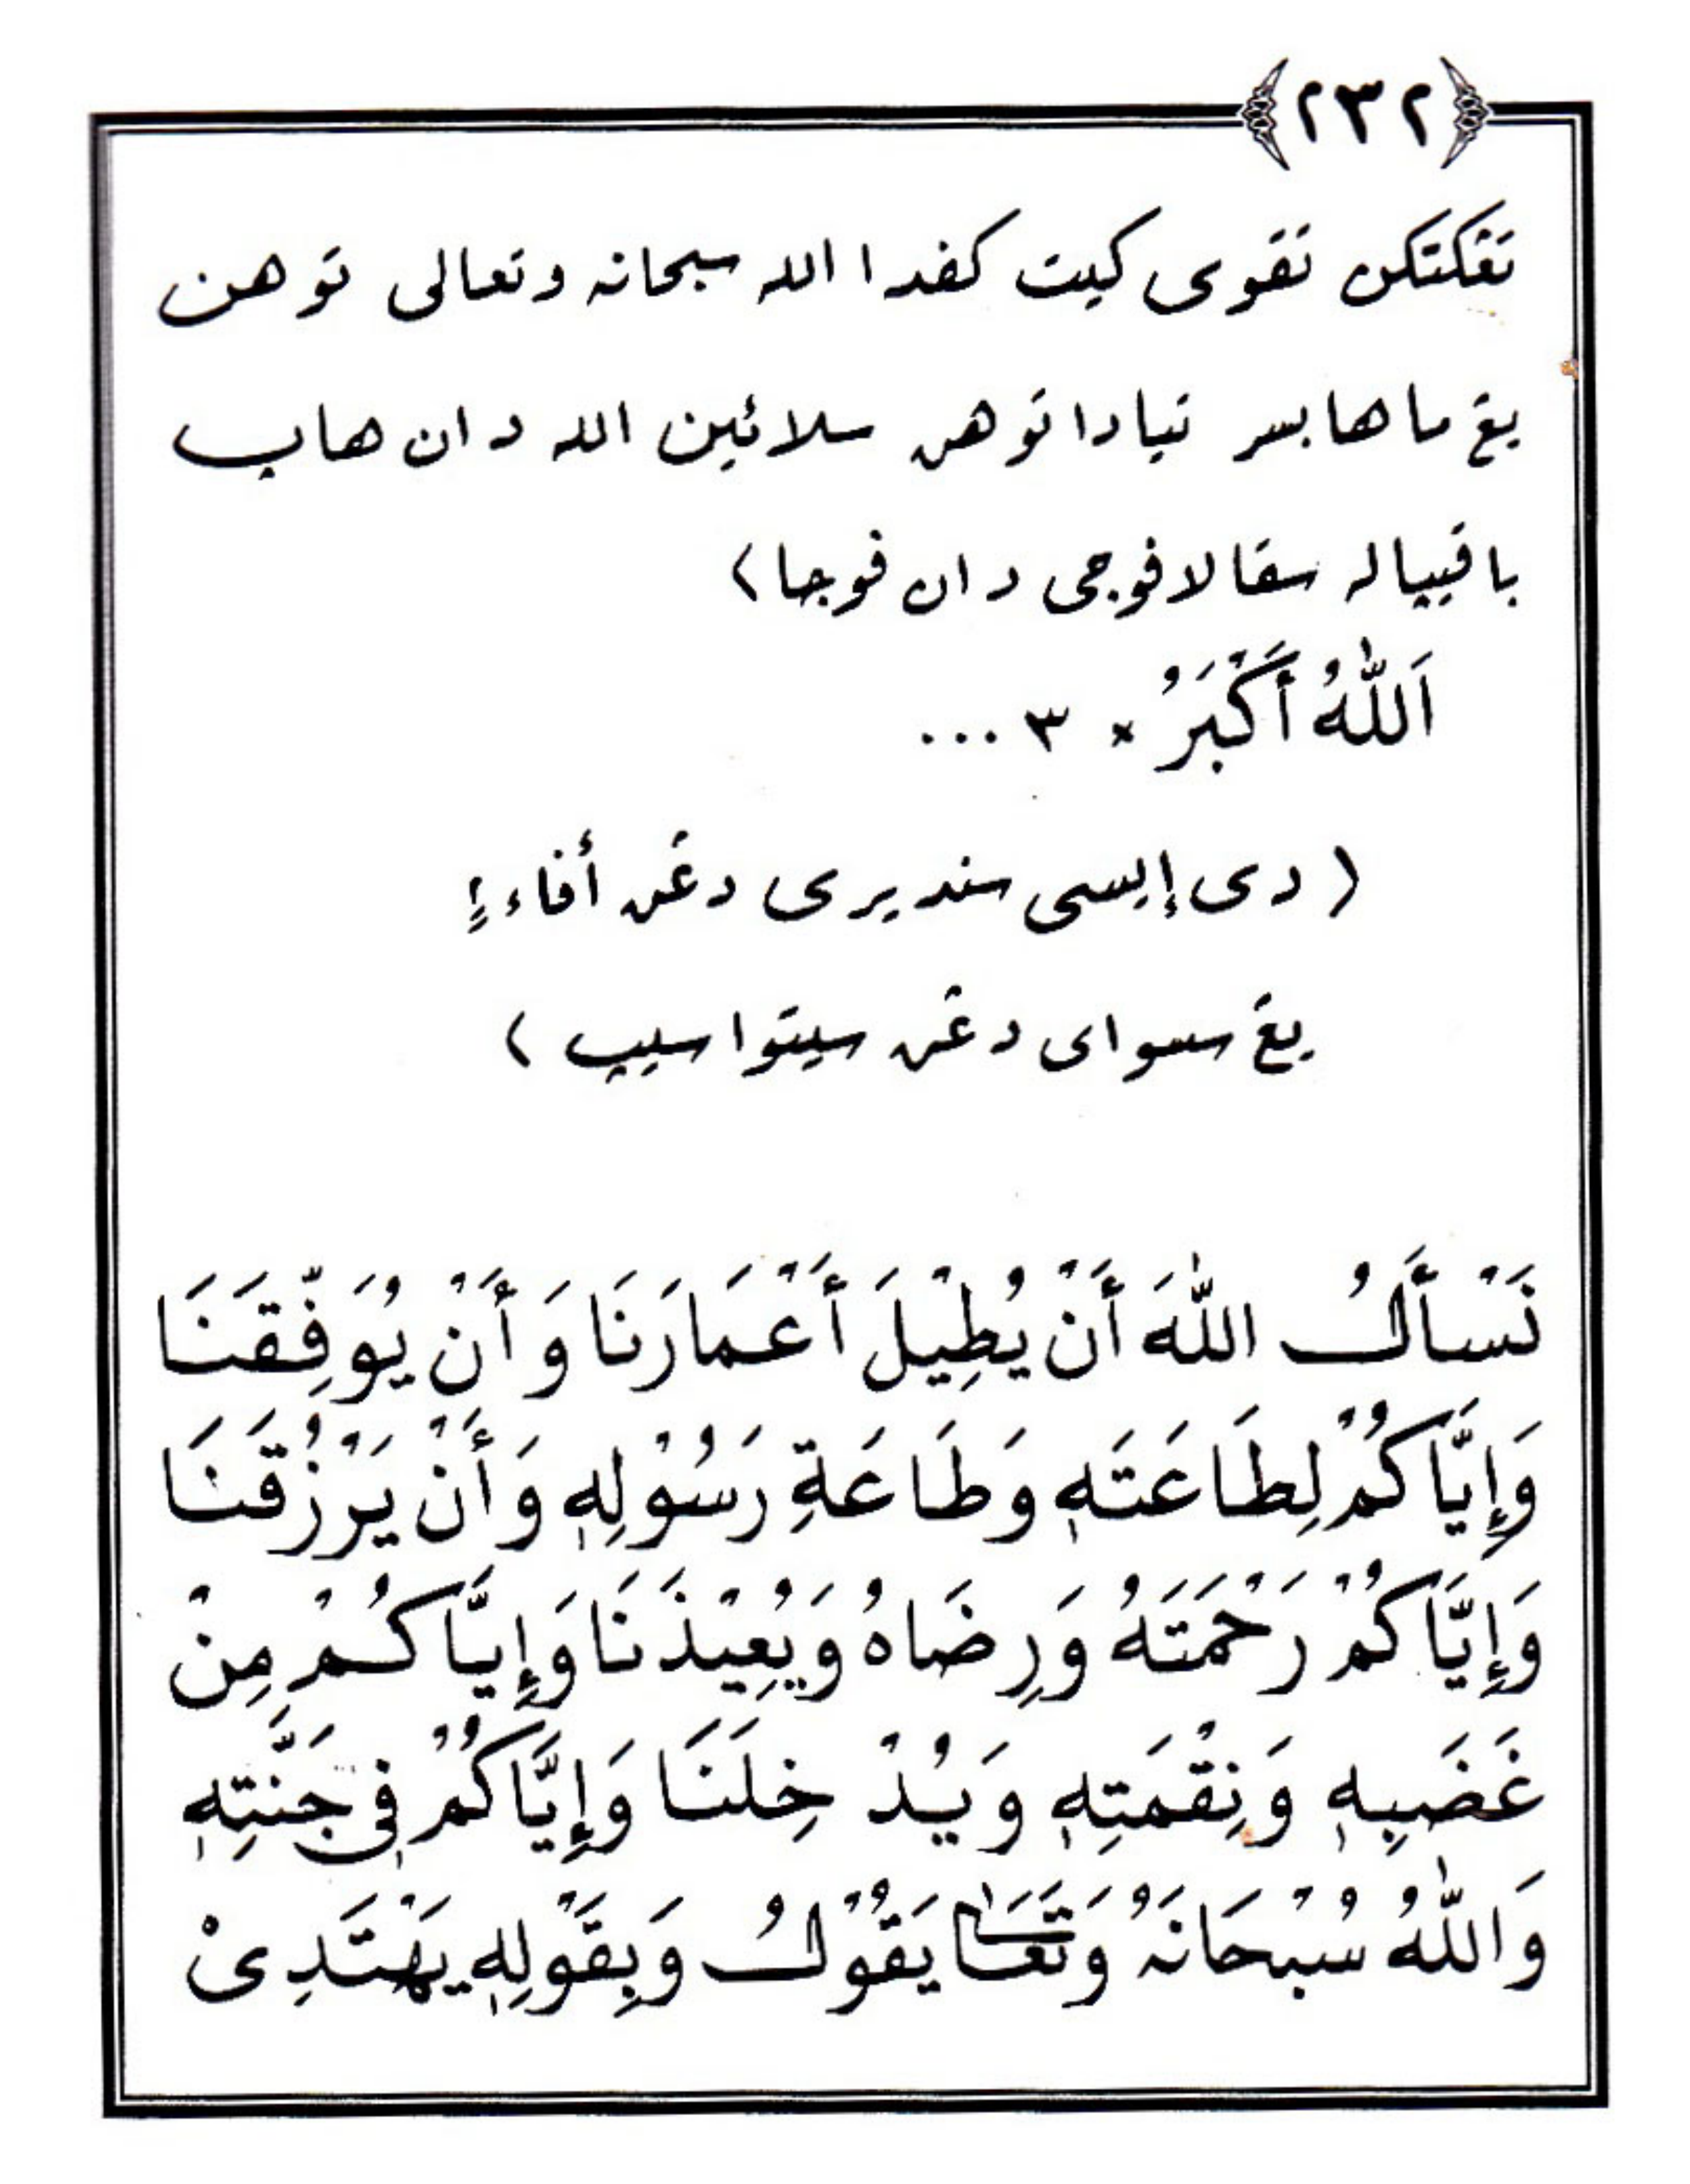 ﴿٢٣٢﴾
تڠكتكن تقوى كيت كفدا الله سبحانه وتعالى توهن
يڠ ماها بسر تيادا توهن سلائين الله دان هاپ
باڬيپاله سڬالا فوجى دان فوجا)
اَللّٰهُ أَكْبَرُ × ٣ ...
( دى إيسى سنديرى دڠن أفاءٍ
يڠ سسواى دڠن سيتواسيپ )
نَسْأَلُ اللّٰهَ أَنْ يُطِيْلَ أَعْمَارَنَا وَأَنْ يُوَفِّقَنَا
وَإِيَّاكُمْ لِطَاعَتَهٖ وَطَاعَةِ رَسُوْلِهٖ وَأَنْ يَرْزُقَنَا
وَإِيَّاكُمْ رَحْمَتَهُ وَرِضَاهُ وَيُعِيْذَنَا وَإِيَّاكُمْ مِنْ
غَضَبِهٖ وَنِقْمَتِهٖ وَيُدْخِلَنَا وَإِيَّاكُمْ فِى جَنَّتِهٖ
وَاللّٰهُ سُبْحَانَهُ وَتَعَالٰى يَقُوْلُ وَبِقَوْلِهٖ يَهْتَدِىْ